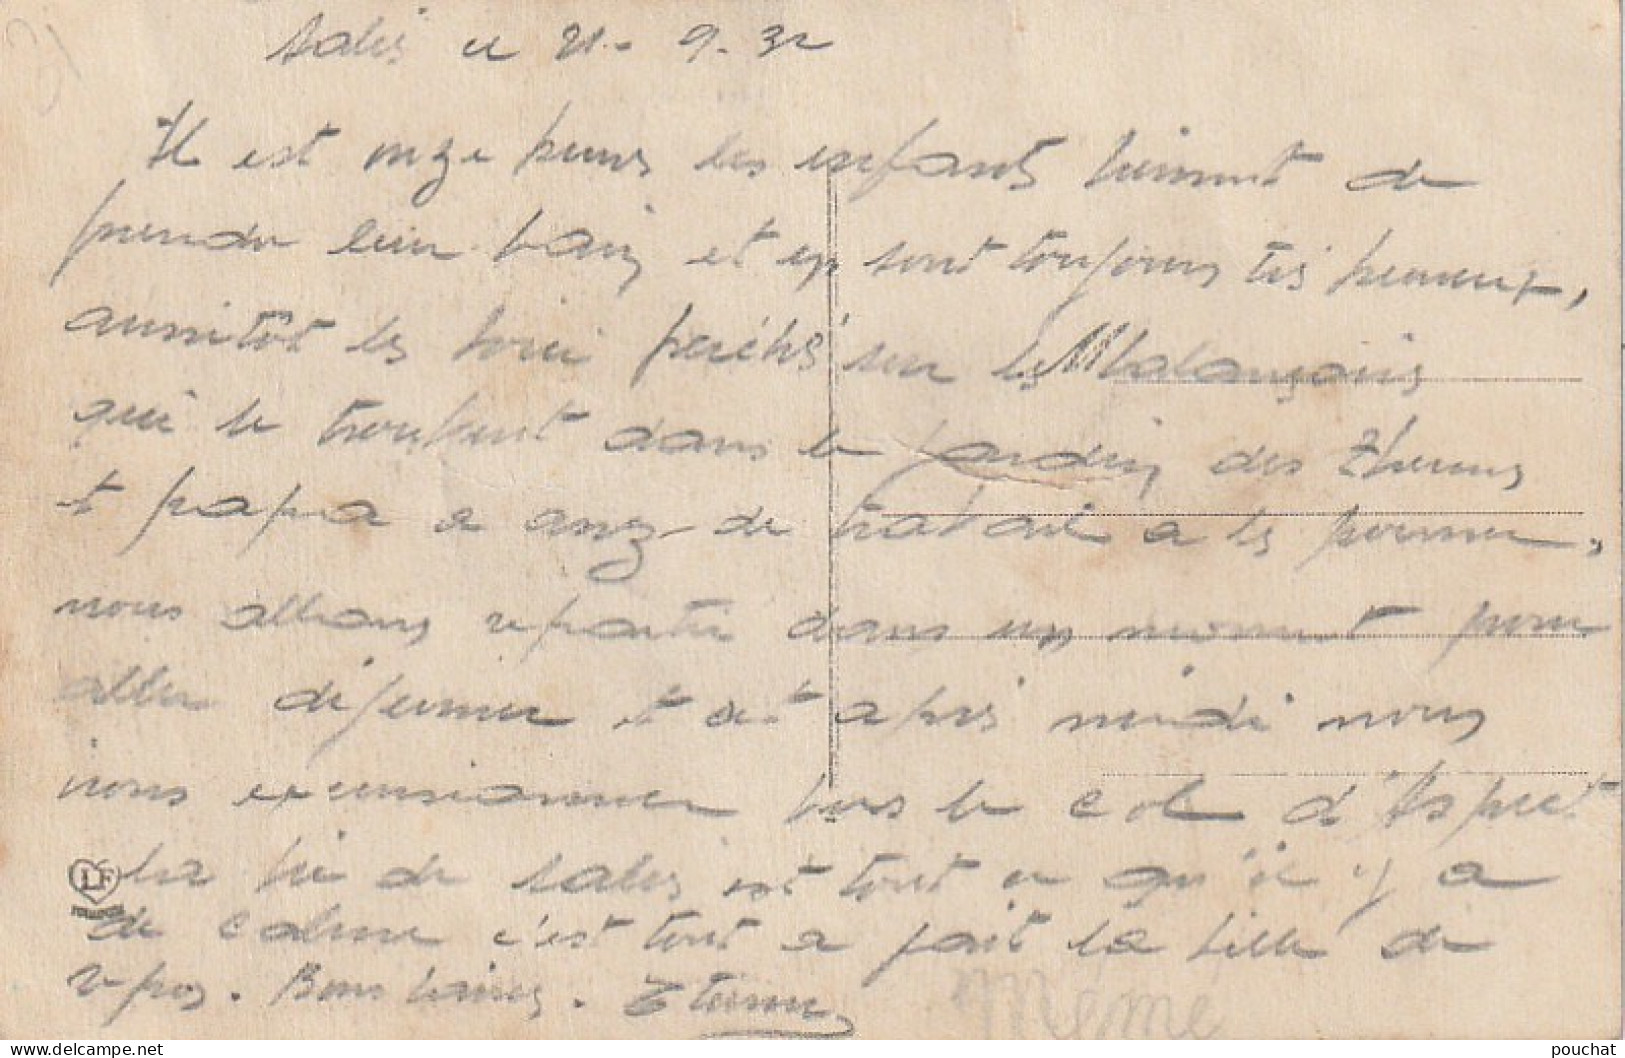 Salies le 21. 9. 32
Il est onze heures les enfants viennent de
prendre leur bain et en sont toujours très heureux,
aussitôt les voici perchés sur les balançoires
qui se trouvent dans le jardin des Thermes
et papa a assez de travail a les promener,
nous allons repartir dans un moment pour
aller déjeuner et cet après midi nous
nous excursionner vers le col d'Aspret
La vie de Salies est tout ce qu'il y a
de calme c'est tout a fait la ville de
repos. Bons baisers. Etienne
Mémé
LF
pouchat